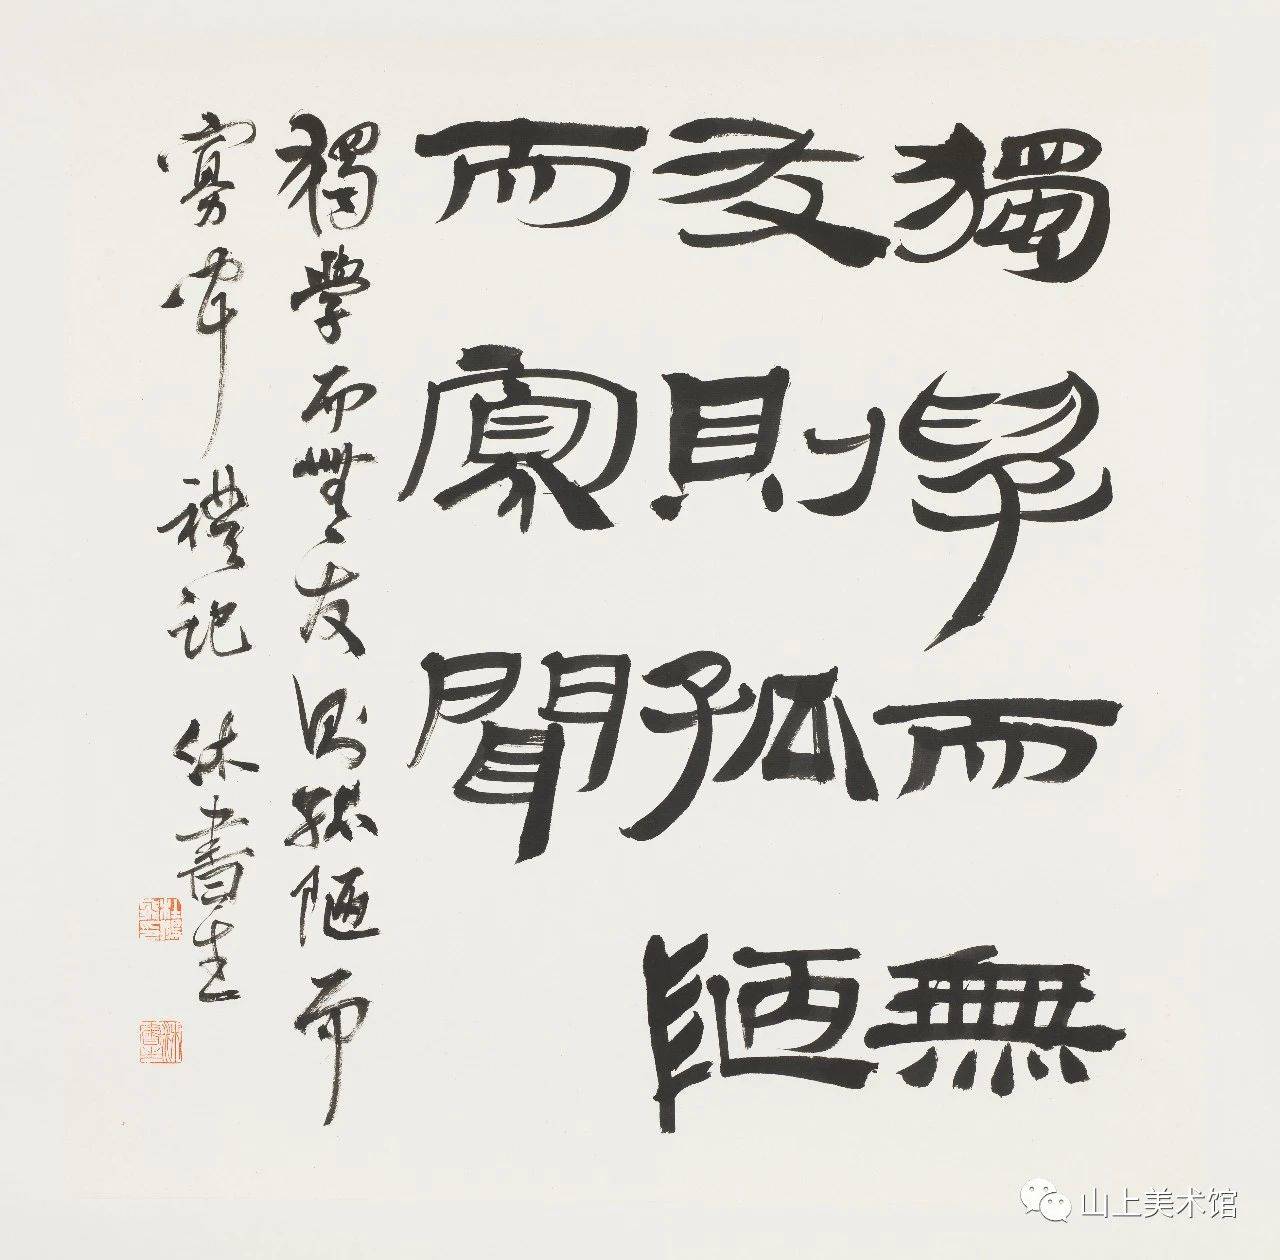 獨學而無
友則孤陋
而寡聞
獨學而無友則孤陋而
寡聞 禮記 休書生
山上美术馆